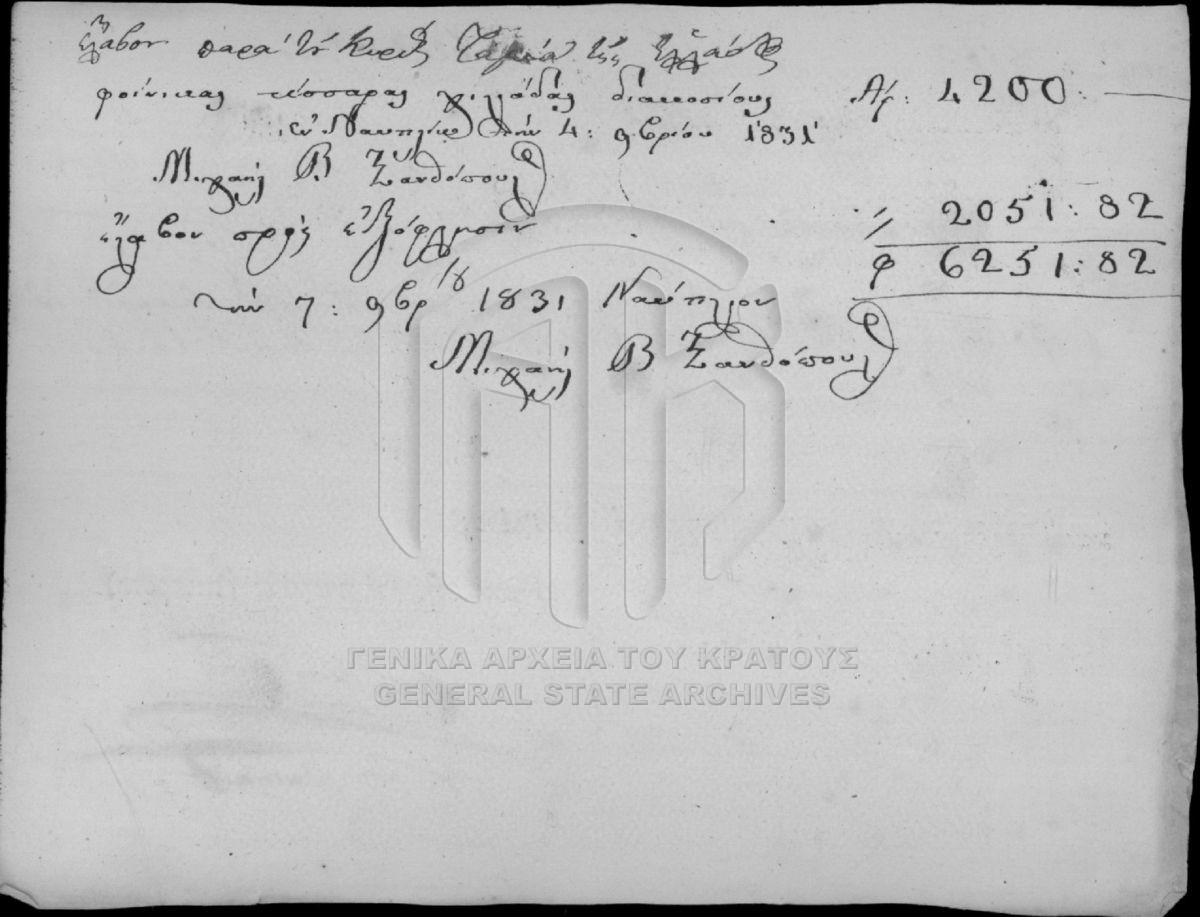 ἔλαβον παρὰ τοῦ Κυρίου Ταμία τῆς Ἑλλάδος
φοίνικας τέσσαρας χιλιάδας διακοσίους Ἀρ: 4200:
ἐν Ναυπλίῳ τὴν 4: 9βρίου 1831
Μιχαήλ Β. Ξανθόπουλος
ἔλαβον πρὸς ἐξόφλησιν 〃 2051:82
φ 6251:82
τὴν 7: 9βρίου 1831 Ναύπλιον
Μιχαήλ Β Ξανθόπουλος
ΓΕΝΙΚΑ ΑΡΧΕΙΑ ΤΟΥ ΚΡΑΤΟΥΣ
GENERAL STATE ARCHIVES